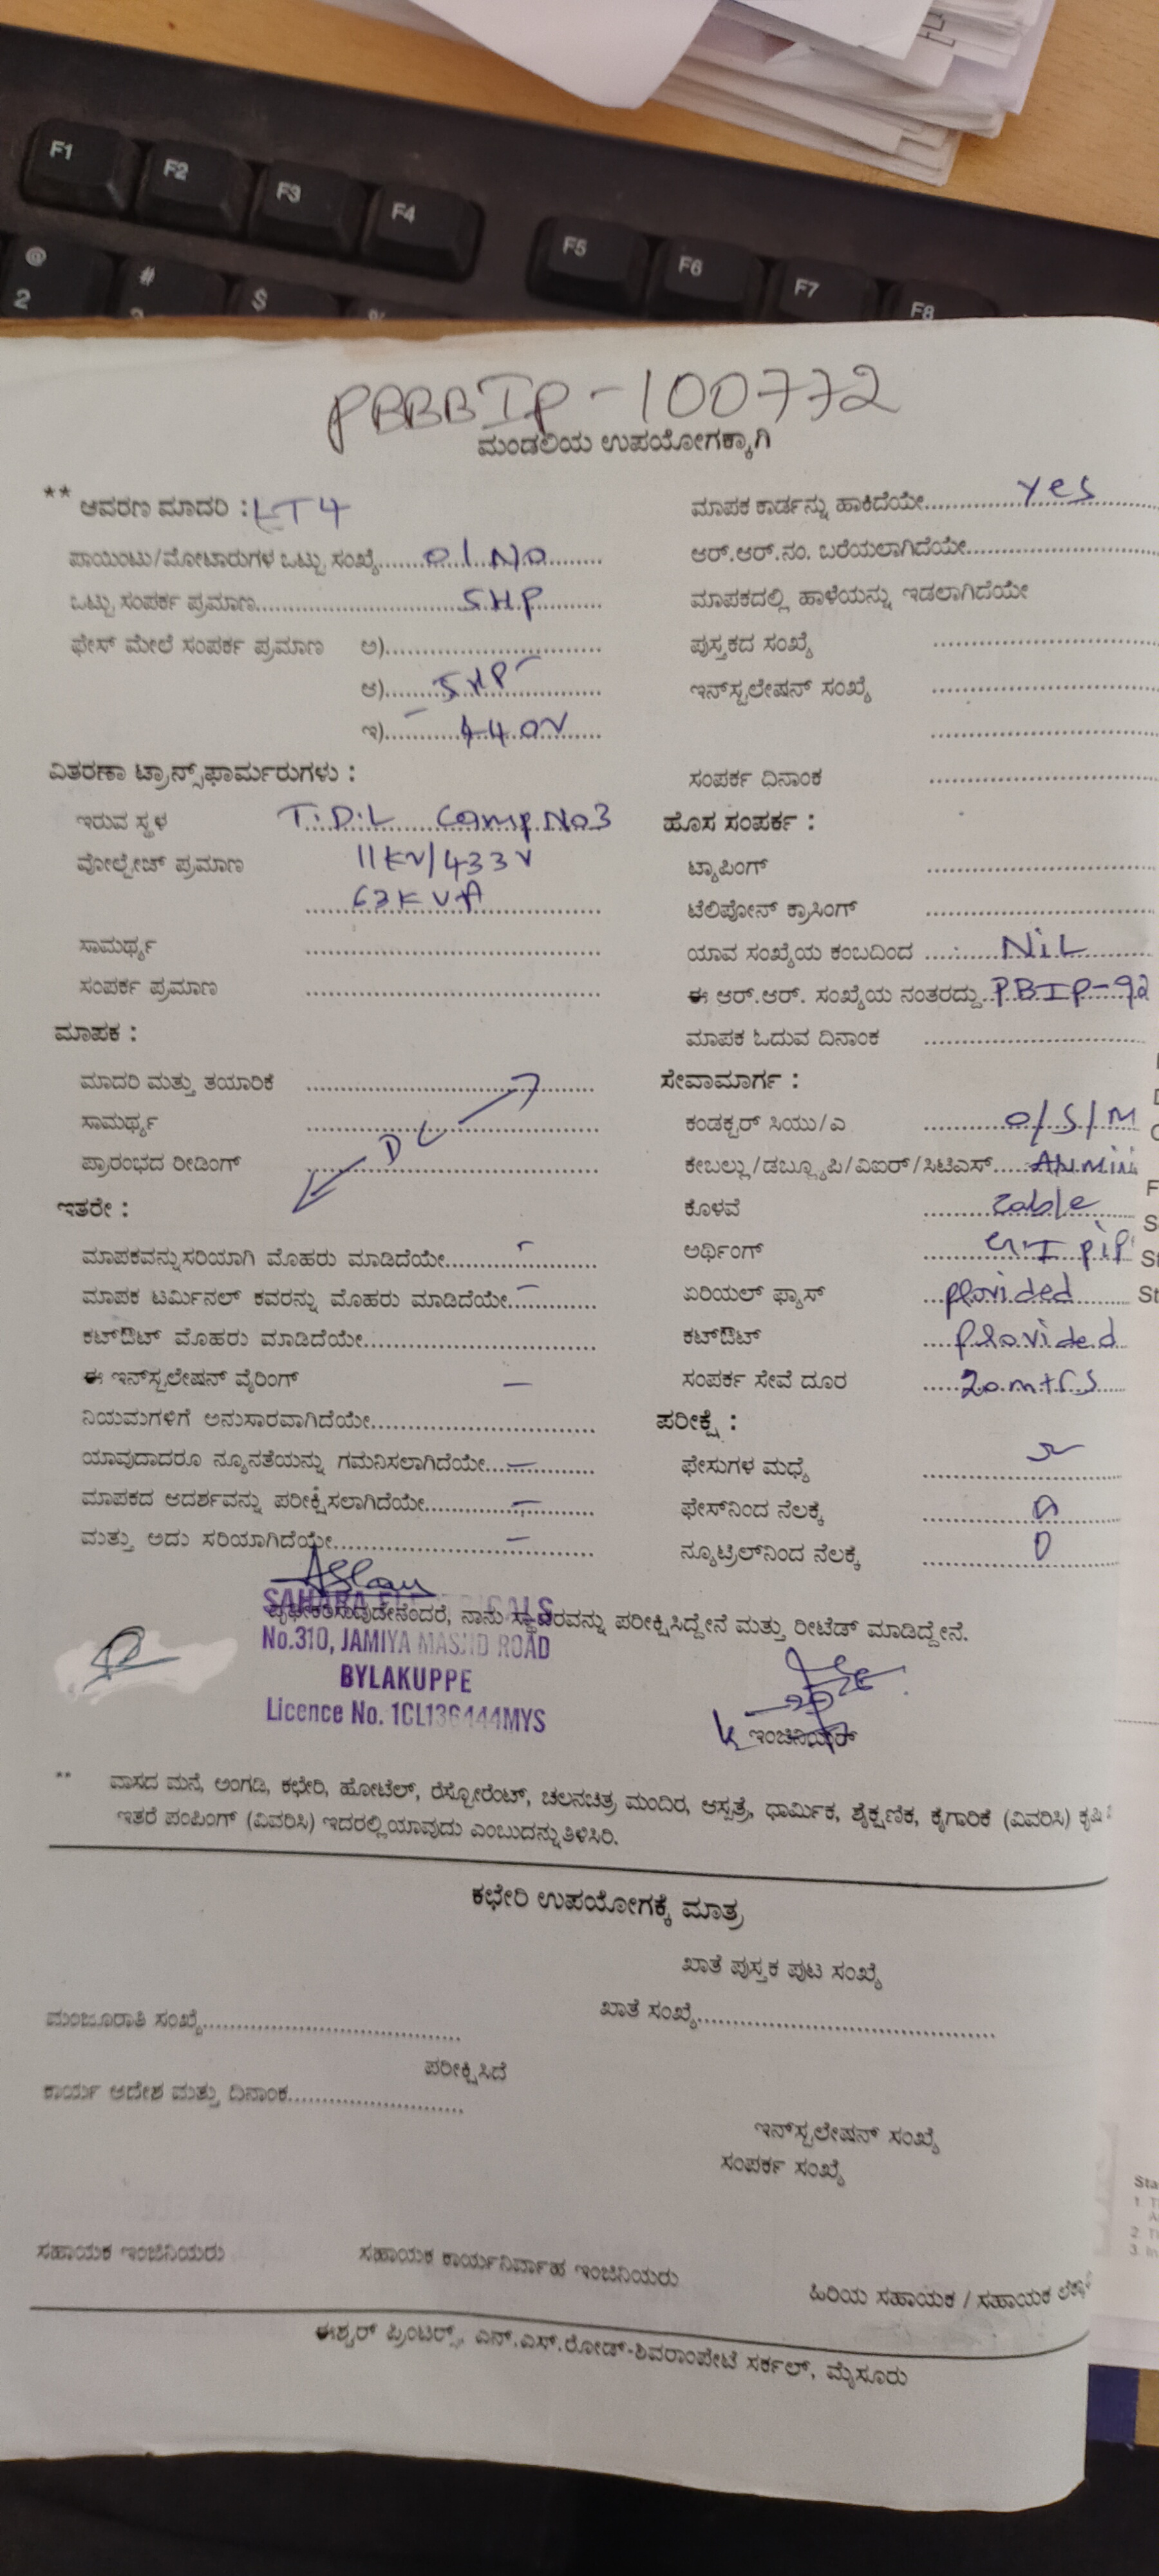 F1 F2 F3 F4 F5 F6 F7 F8
@ # $ %
2
PBBBIP-100772
ಮಂಡಲಿಯ ಉಪಯೋಗಕ್ಕಾಗಿ
** ಆವರಣ ಮಾದರಿ : LT4
ಪಾಯಿಂಟು/ಮೋಟಾರುಗಳ ಒಟ್ಟು ಸಂಖ್ಯೆ.......01.NO.........
ಒಟ್ಟು ಸಂಪರ್ಕ ಪ್ರಮಾಣ..............................5HP..........
ಫೇಸ್ ಮೇಲೆ ಸಂಪರ್ಕ ಪ್ರಮಾಣ ಅ)..............................
ಆ)........5HP..............
ಇ)............440V......
ವಿತರಣಾ ಟ್ರಾನ್ಸ್‌ಫಾರ್ಮರುಗಳು :
ಇರುವ ಸ್ಥಳ T.D.L Camp No3
ವೋಲ್ಟೇಜ್ ಪ್ರಮಾಣ 11KV/433V
63KVA
ಸಾಮರ್ಥ್ಯ ..........................................
ಸಂಪರ್ಕ ಪ್ರಮಾಣ ..........................................
ಮಾಪಕ :
ಮಾದರಿ ಮತ್ತು ತಯಾರಿಕೆ ..........................................
ಸಾಮರ್ಥ್ಯ ..........................................
DL
ಪ್ರಾರಂಭದ ರೀಡಿಂಗ್ ..........................................
ಇತರೇ :
ಮಾಪಕವನ್ನು ಸರಿಯಾಗಿ ಮೊಹರು ಮಾಡಿದೆಯೇ..................
ಮಾಪಕ ಟರ್ಮಿನಲ್ ಕವರನ್ನು ಮೊಹರು ಮಾಡಿದೆಯೇ.... – ........
ಕಟ್‌ಔಟ್ ಮೊಹರು ಮಾಡಿದೆಯೇ.................................
ಈ ಇನ್‌ಸ್ಟಲೇಷನ್ ವೈರಿಂಗ್ –
ನಿಯಮಗಳಿಗೆ ಅನುಸಾರವಾಗಿದೆಯೇ................................
ಯಾವುದಾದರೂ ನ್ಯೂನತೆಯನ್ನು ಗಮನಿಸಲಾಗಿದೆಯೇ.... – ........
ಮಾಪಕದ ಆದರ್ಶವನ್ನು ಪರೀಕ್ಷಿಸಲಾಗಿದೆಯೇ............ – ........
ಮತ್ತು ಅದು ಸರಿಯಾಗಿದೆಯೇ........................ – ........
ಮಾಪಕ ಕಾರ್ಡನ್ನು ಹಾಕಿದೆಯೇ............Yes............
ಆರ್.ಆರ್.ನಂ. ಬರೆಯಲಾಗಿದೆಯೇ............................
ಮಾಪಕದಲ್ಲಿ ಹಾಳೆಯನ್ನು ಇಡಲಾಗಿದೆಯೇ
ಪುಸ್ತಕದ ಸಂಖ್ಯೆ ..............................
ಇನ್‌ಸ್ಟಲೇಷನ್ ಸಂಖ್ಯೆ ..............................
..............................
ಸಂಪರ್ಕ ದಿನಾಂಕ ..............................
ಹೊಸ ಸಂಪರ್ಕ :
ಟ್ಯಾಪಿಂಗ್ ..............................
ಟೆಲಿಪೋನ್ ಕ್ರಾಸಿಂಗ್ ..............................
ಯಾವ ಸಂಖ್ಯೆಯ ಕಂಬದಿಂದ ..........NiL..........
ಈ ಆರ್.ಆರ್. ಸಂಖ್ಯೆಯ ನಂತರದ್ದು..PBIP-92
ಮಾಪಕ ಓದುವ ದಿನಾಂಕ ..............................
ಸೇವಾಮಾರ್ಗ :
ಕಂಡಕ್ಟರ್ ಸಿಯು/ಎ ............O/S/M
ಕೇಬಲ್ಲು/ಡಬ್ಲ್ಯೂಪಿ/ವಿಐರ್/ಸಿಟಿಎಸ್.....
ಕೊಳವೆ ..........cable......
ಅರ್ಥಿಂಗ್ ..........G.I pip
ಏರಿಯಲ್ ಫ್ಯೂಸ್ ....provided......
ಕಟ್‌ಔಟ್ .....provided..
ಸಂಪರ್ಕ ಸೇವೆ ದೂರ .....20.mtrs....
ಪರೀಕ್ಷೆ :
ಫೇಸುಗಳ ಮಧ್ಯೆ ..............................
ಫೇಸ್‌ನಿಂದ ನೆಲಕ್ಕೆ ..............0..............
ನ್ಯೂಟ್ರಲ್‌ನಿಂದ ನೆಲಕ್ಕೆ ..............0..............
SAHARA ELECTRICALS
ನಾನು ಸ್ಥಾವರವನ್ನು ಪರೀಕ್ಷಿಸಿದ್ದೇನೆ ಮತ್ತು ರೀಟೆಡ್ ಮಾಡಿದ್ದೇನೆ.
No.310, JAMIYA MASJID ROAD
BYLAKUPPE
Licence No. 1CL136444MYS
ಇಂಜಿನಿಯರ್
** ವಾಸದ ಮನೆ, ಅಂಗಡಿ, ಕಛೇರಿ, ಹೋಟೆಲ್, ರೆಸ್ಟೋರೆಂಟ್, ಚಲನಚಿತ್ರ ಮಂದಿರ, ಆಸ್ಪತ್ರೆ, ಧಾರ್ಮಿಕ, ಶೈಕ್ಷಣಿಕ, ಕೈಗಾರಿಕೆ (ವಿವರಿಸಿ) ಕೃಷಿ
ಇತರೆ ಪಂಪಿಂಗ್ (ವಿವರಿಸಿ) ಇದರಲ್ಲಿ ಯಾವುದು ಎಂಬುದನ್ನು ತಿಳಿಸಿರಿ.
ಕಛೇರಿ ಉಪಯೋಗಕ್ಕೆ ಮಾತ್ರ
ಖಾತೆ ಪುಸ್ತಕ ಪುಟ ಸಂಖ್ಯೆ
ಮಂಜೂರಾತಿ ಸಂಖ್ಯೆ.................................... ಖಾತೆ ಸಂಖ್ಯೆ..........................................
ಪರೀಕ್ಷಿಸಿದೆ
ಕಾರ್ಯ ಆದೇಶ ಮತ್ತು ದಿನಾಂಕ.........................
ಇನ್‌ಸ್ಟಲೇಷನ್ ಸಂಖ್ಯೆ
ಸಂಪರ್ಕ ಸಂಖ್ಯೆ
ಸಹಾಯಕ ಇಂಜಿನಿಯರು ಸಹಾಯಕ ಕಾರ್ಯನಿರ್ವಾಹ ಇಂಜಿನಿಯರು ಹಿರಿಯ ಸಹಾಯಕ / ಸಹಾಯಕ
ಈಶ್ವರ್ ಪ್ರಿಂಟರ್ಸ್, ಎನ್.ಎಸ್.ರೋಡ್-ಶಿವರಾಂಪೇಟೆ ಸರ್ಕಲ್, ಮೈಸೂರು